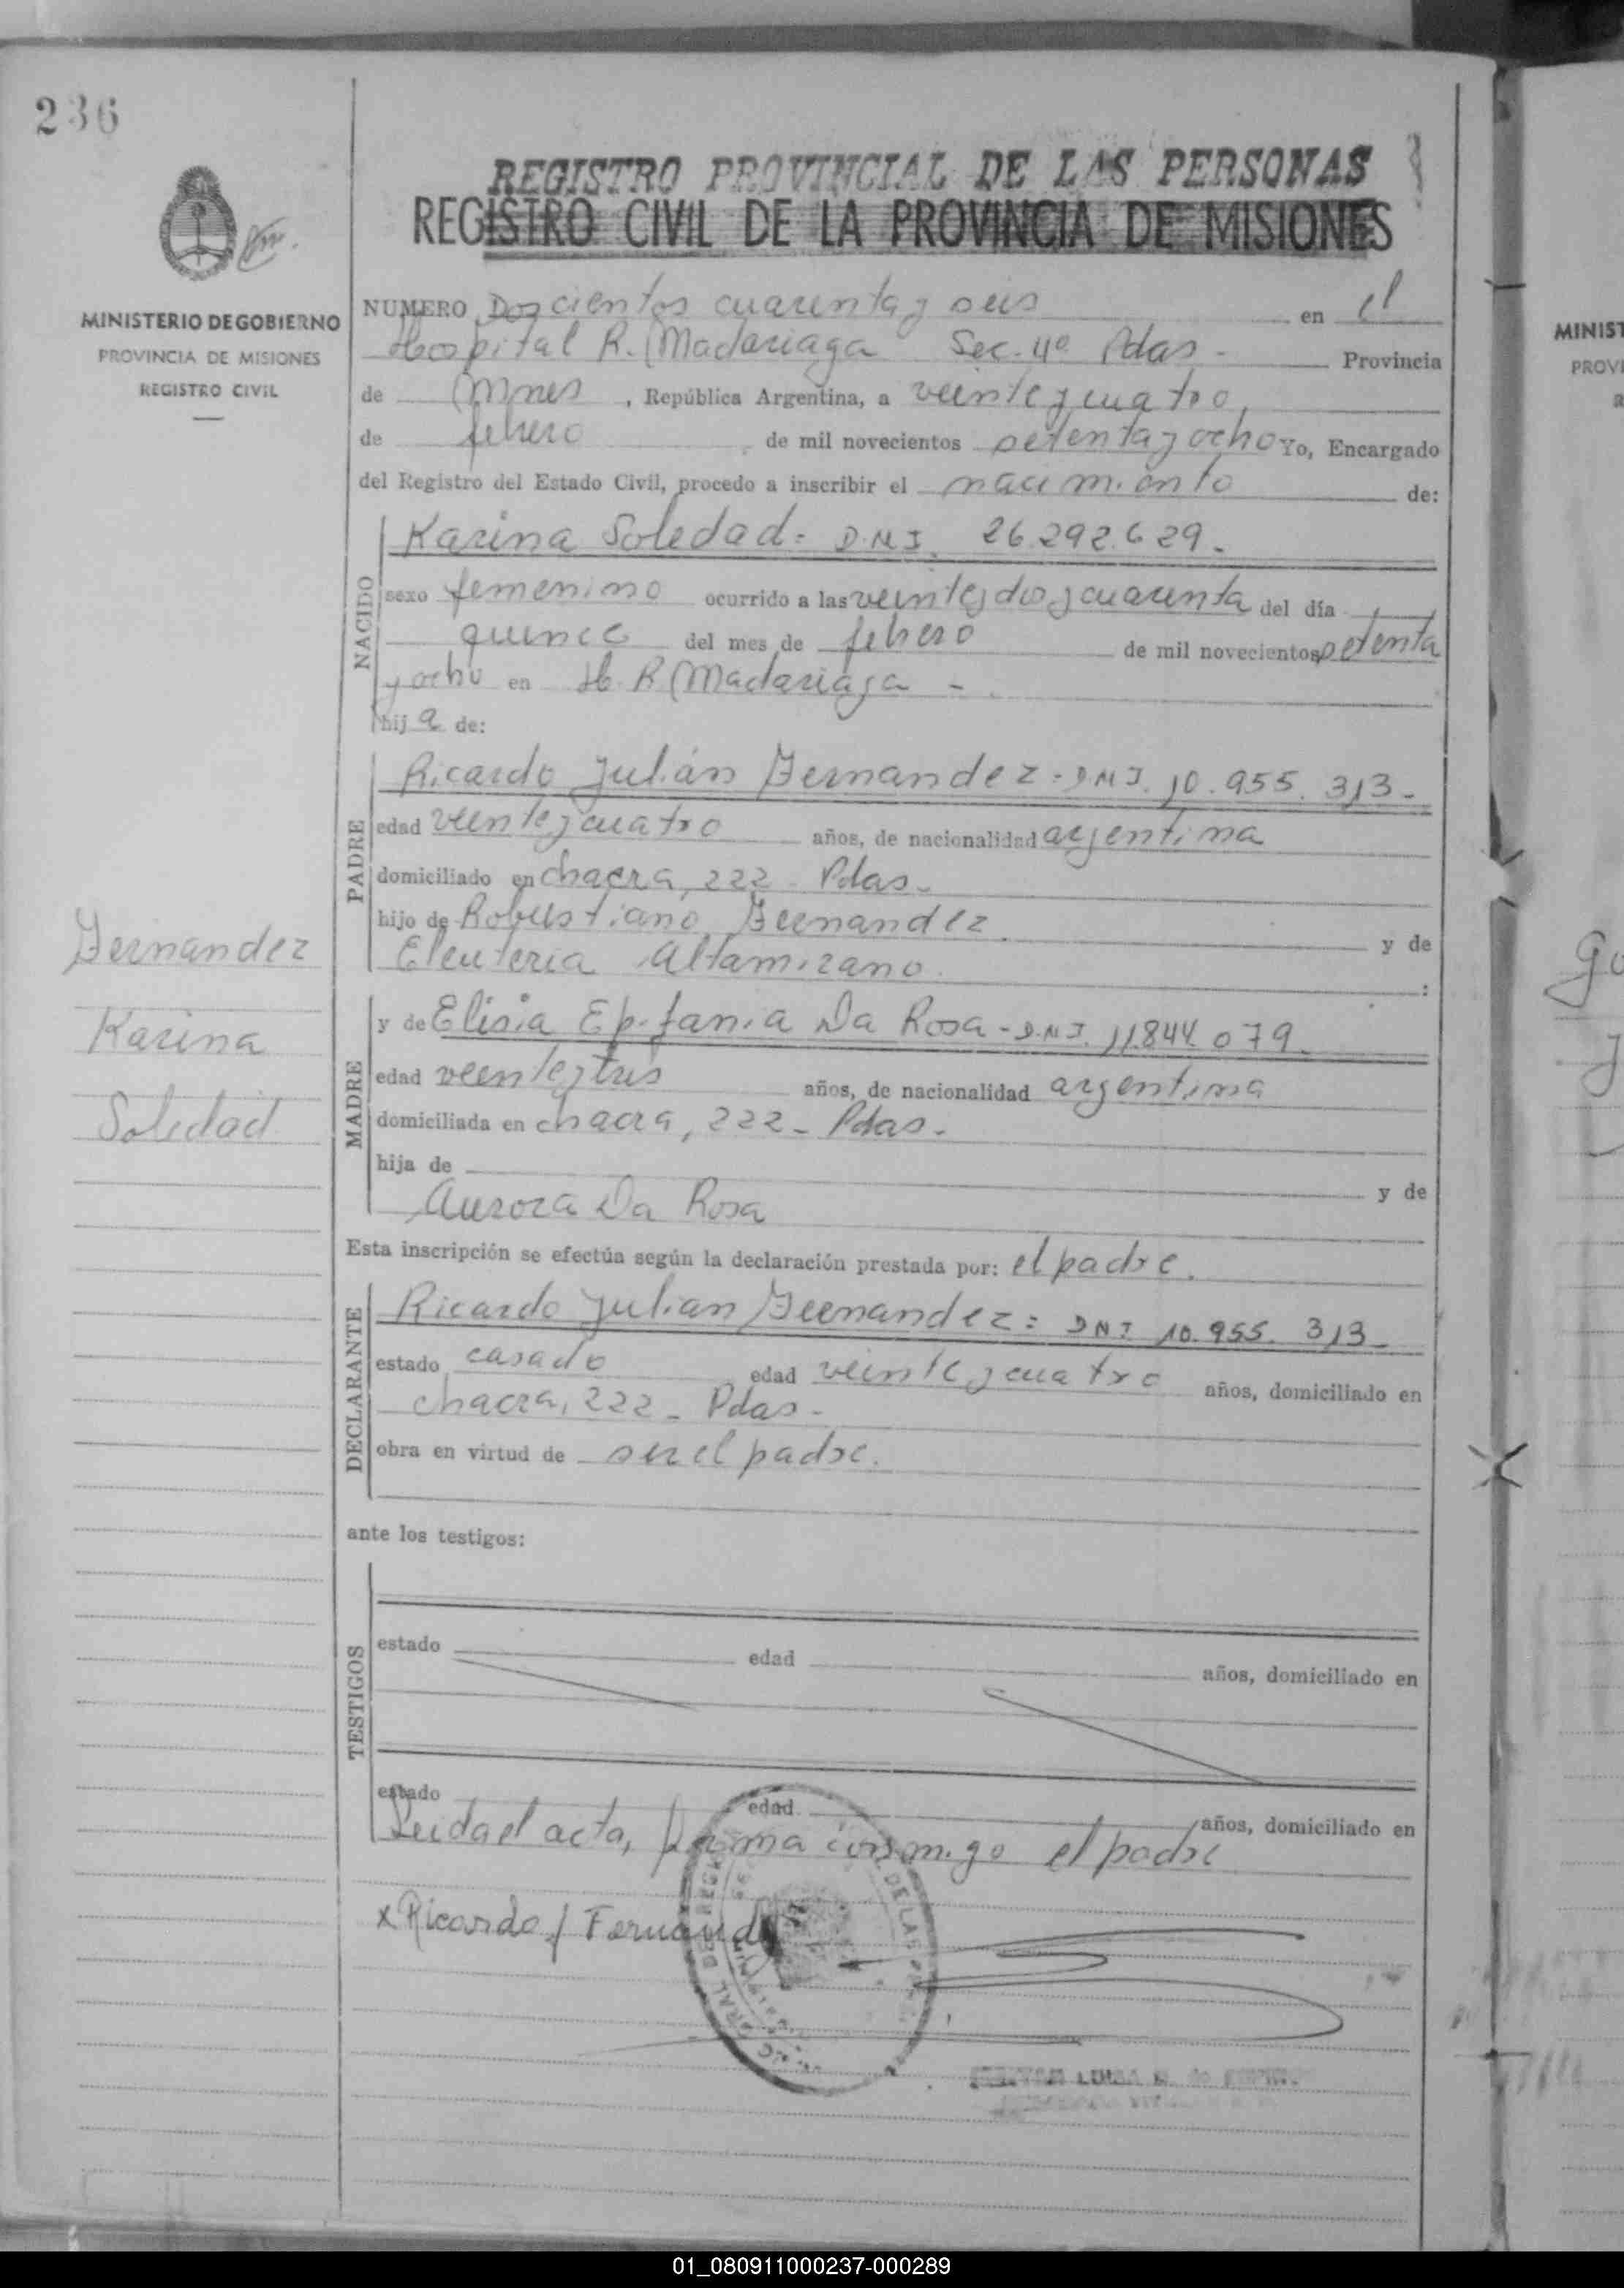 236
REGISTRO PROVINCIAL DE LAS PERSONAS
REGISTRO CIVIL DE LA PROVINCIA DE MISIONES
MINISTERIO DE GOBIERNO
PROVINCIA DE MISIONES
REGISTRO CIVIL
NUMERO Doscientos cuarenta y seis en el
Hospital R. Madariaga Sec. 4º Pdas - Provincia
de Mnes, República Argentina, a veinte y cuatro,
de febrero de mil novecientos setenta y ocho Yo, Encargado
del Registro del Estado Civil, procedo a inscribir el nacimiento de:
NACIDO
Karina Soledad = D.N.I. 26.292.629.
sexo femenino ocurrido a las veinte y dos y cuarenta del día
quince del mes de febrero de mil novecientos setenta
y ocho en H. R Madariaga -
hija de:
PADRE
Ricardo Julián Fernandez = DNI. 10.955.313.
edad veinte y cuatro años, de nacionalidad argentina
domiciliado en chacra, 222 - Pdas.
hijo de Robustiano Fernandez y de
Eleuteria Altamirano :
Fernandez
Karina
Soledad
MADRE
y de Elisia Epifania Da Rosa - D.N.I. 11.844.079.
edad veinte y tres años, de nacionalidad argentina
domiciliada en chacra, 222 - Pdas.
hija de y de
Aurora Da Rosa
Esta inscripción se efectúa según la declaración prestada por: el padre.
DECLARANTE
Ricardo Julian Fernandez = DNI 10.955.313
estado casado edad veinte y cuatro años, domiciliado en
chacra, 222 - Pdas -
obra en virtud de ser el padre.
ante los testigos:
TESTIGOS
estado edad años, domiciliado en
estado edad años, domiciliado en
Leida el acta, firma conmigo el padre
x Ricardo J Fernand
MINIST
PROVI
01_080911000237-000289